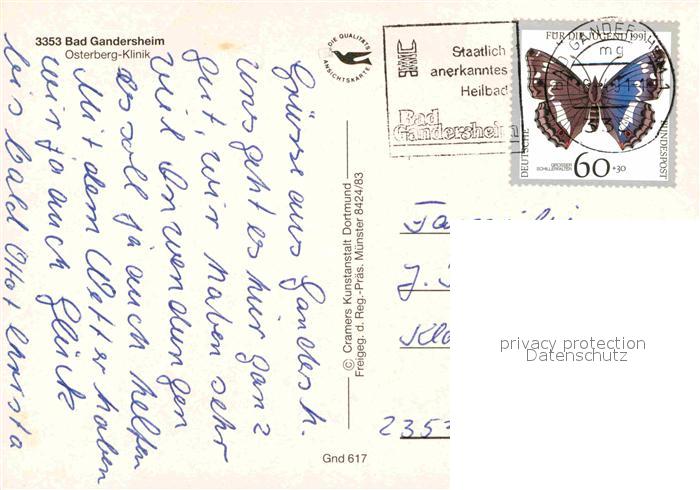 3353 Bad Gandersheim
Osterberg-Klinik
DIE QUALITÄTS
ANSICHTSKARTE
Staatlich
anerkanntes
Heilbad
Bad
Gandersheim
FÜR DIE JUGEND 1991
mg
1
DEUTSCHE
BUNDESPOST
GROSSER
SCHILLERFALTER
60+30
Grüsse aus Gandersh.
Uns geht es hier ganz
gut, wir haben sehr
viel Anwendungen
es soll ja auch helfen
Mit dem Wetter haben
wir ja auch Glück
bis bald Christa
© Cramers Kunstanstalt Dortmund
Freigeg. d. Reg.-Präs. Münster 8424/83
Gnd 617
J.
2353
privacy protection
Datenschutz